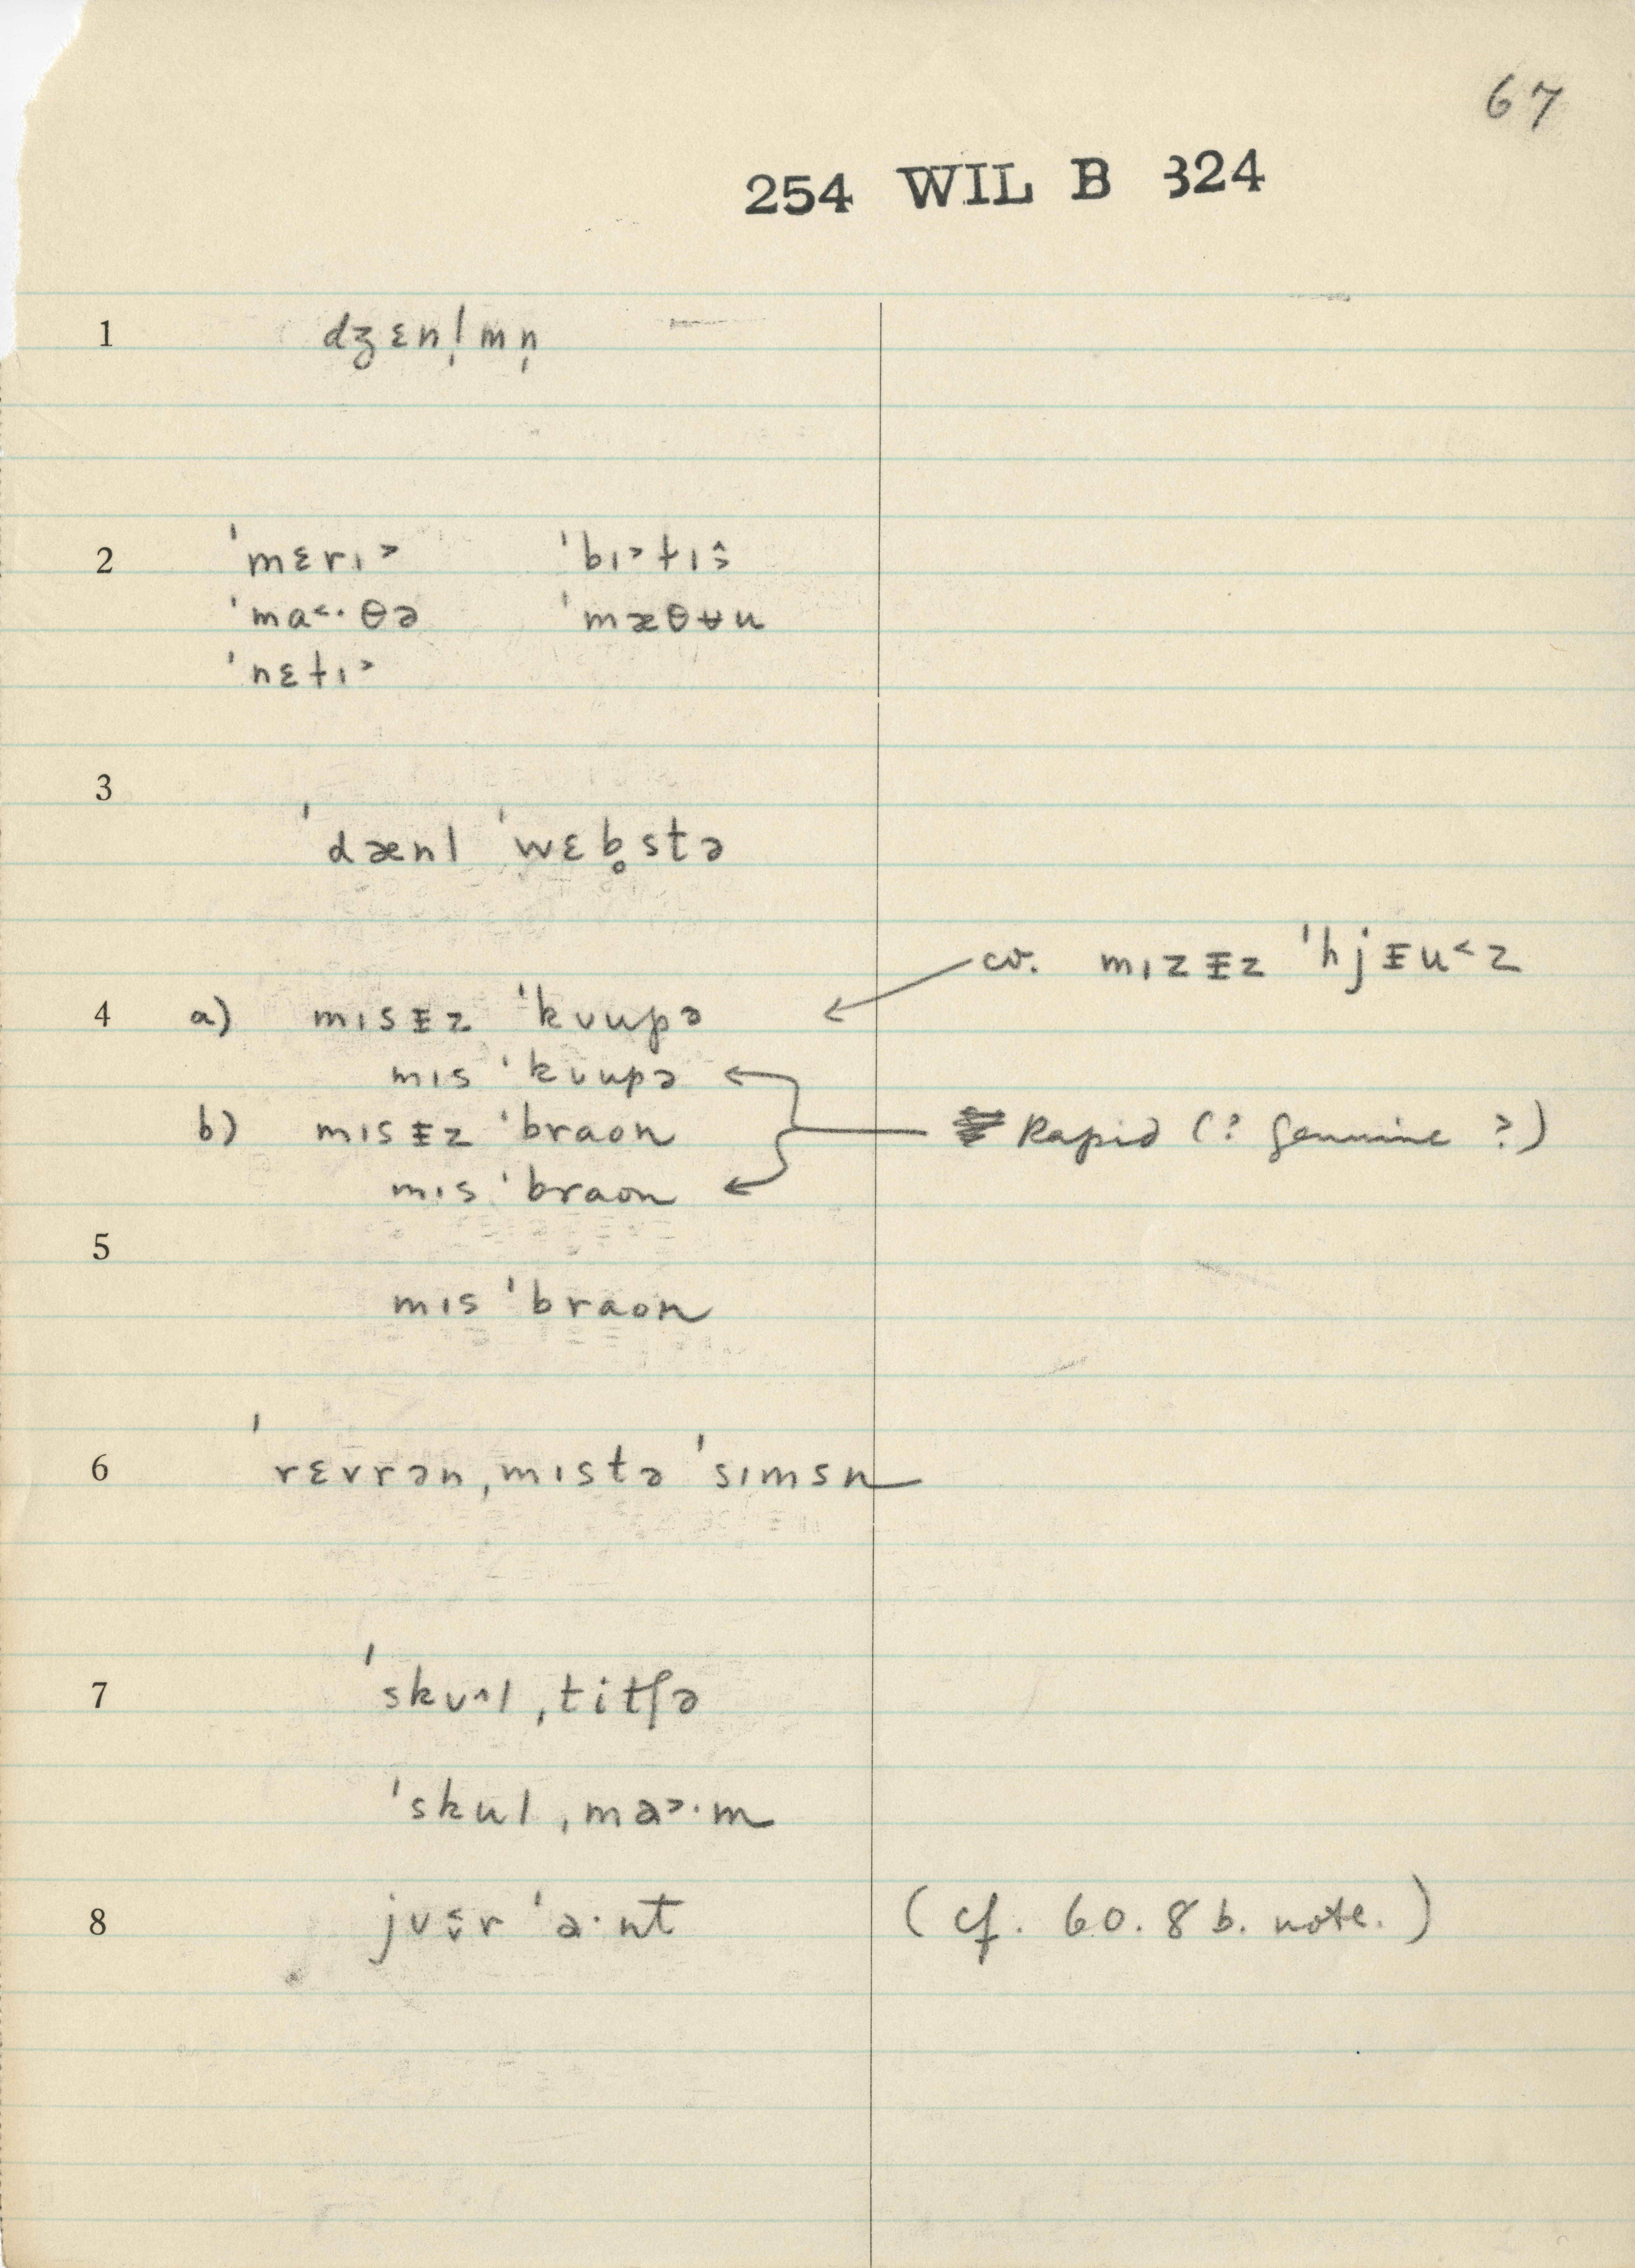 67
254 WIL B 324
1 dʒɛnl̩mn̩
2 ˈmɛrɪ˃ ˈbɪ˃t̬ɪ˃̂
ˈma˂·θə ˈmæθʉu
ˈnɛt̬ɪ˃
3
ˈdænl ˈwɛb̥stə
cv. mɪzᵻz ˈhjᵻu˂z
4 a) mɪsᵻz ˈkʊupə
mɪs ˈkʊupə
b) mɪsᵻz ˈbraon Rapid (? genuine ?)
mɪs ˈbraon
5
mɪs ˈbraon
6 ˈrɛvrənˌmɪstə ˈsɪmsn
7 ˈskʊ^lˌtitʃə
ˈskulˌma˃·m
8 jʊ˂̬r ˈa·nt (cf. 60.8b. note.)